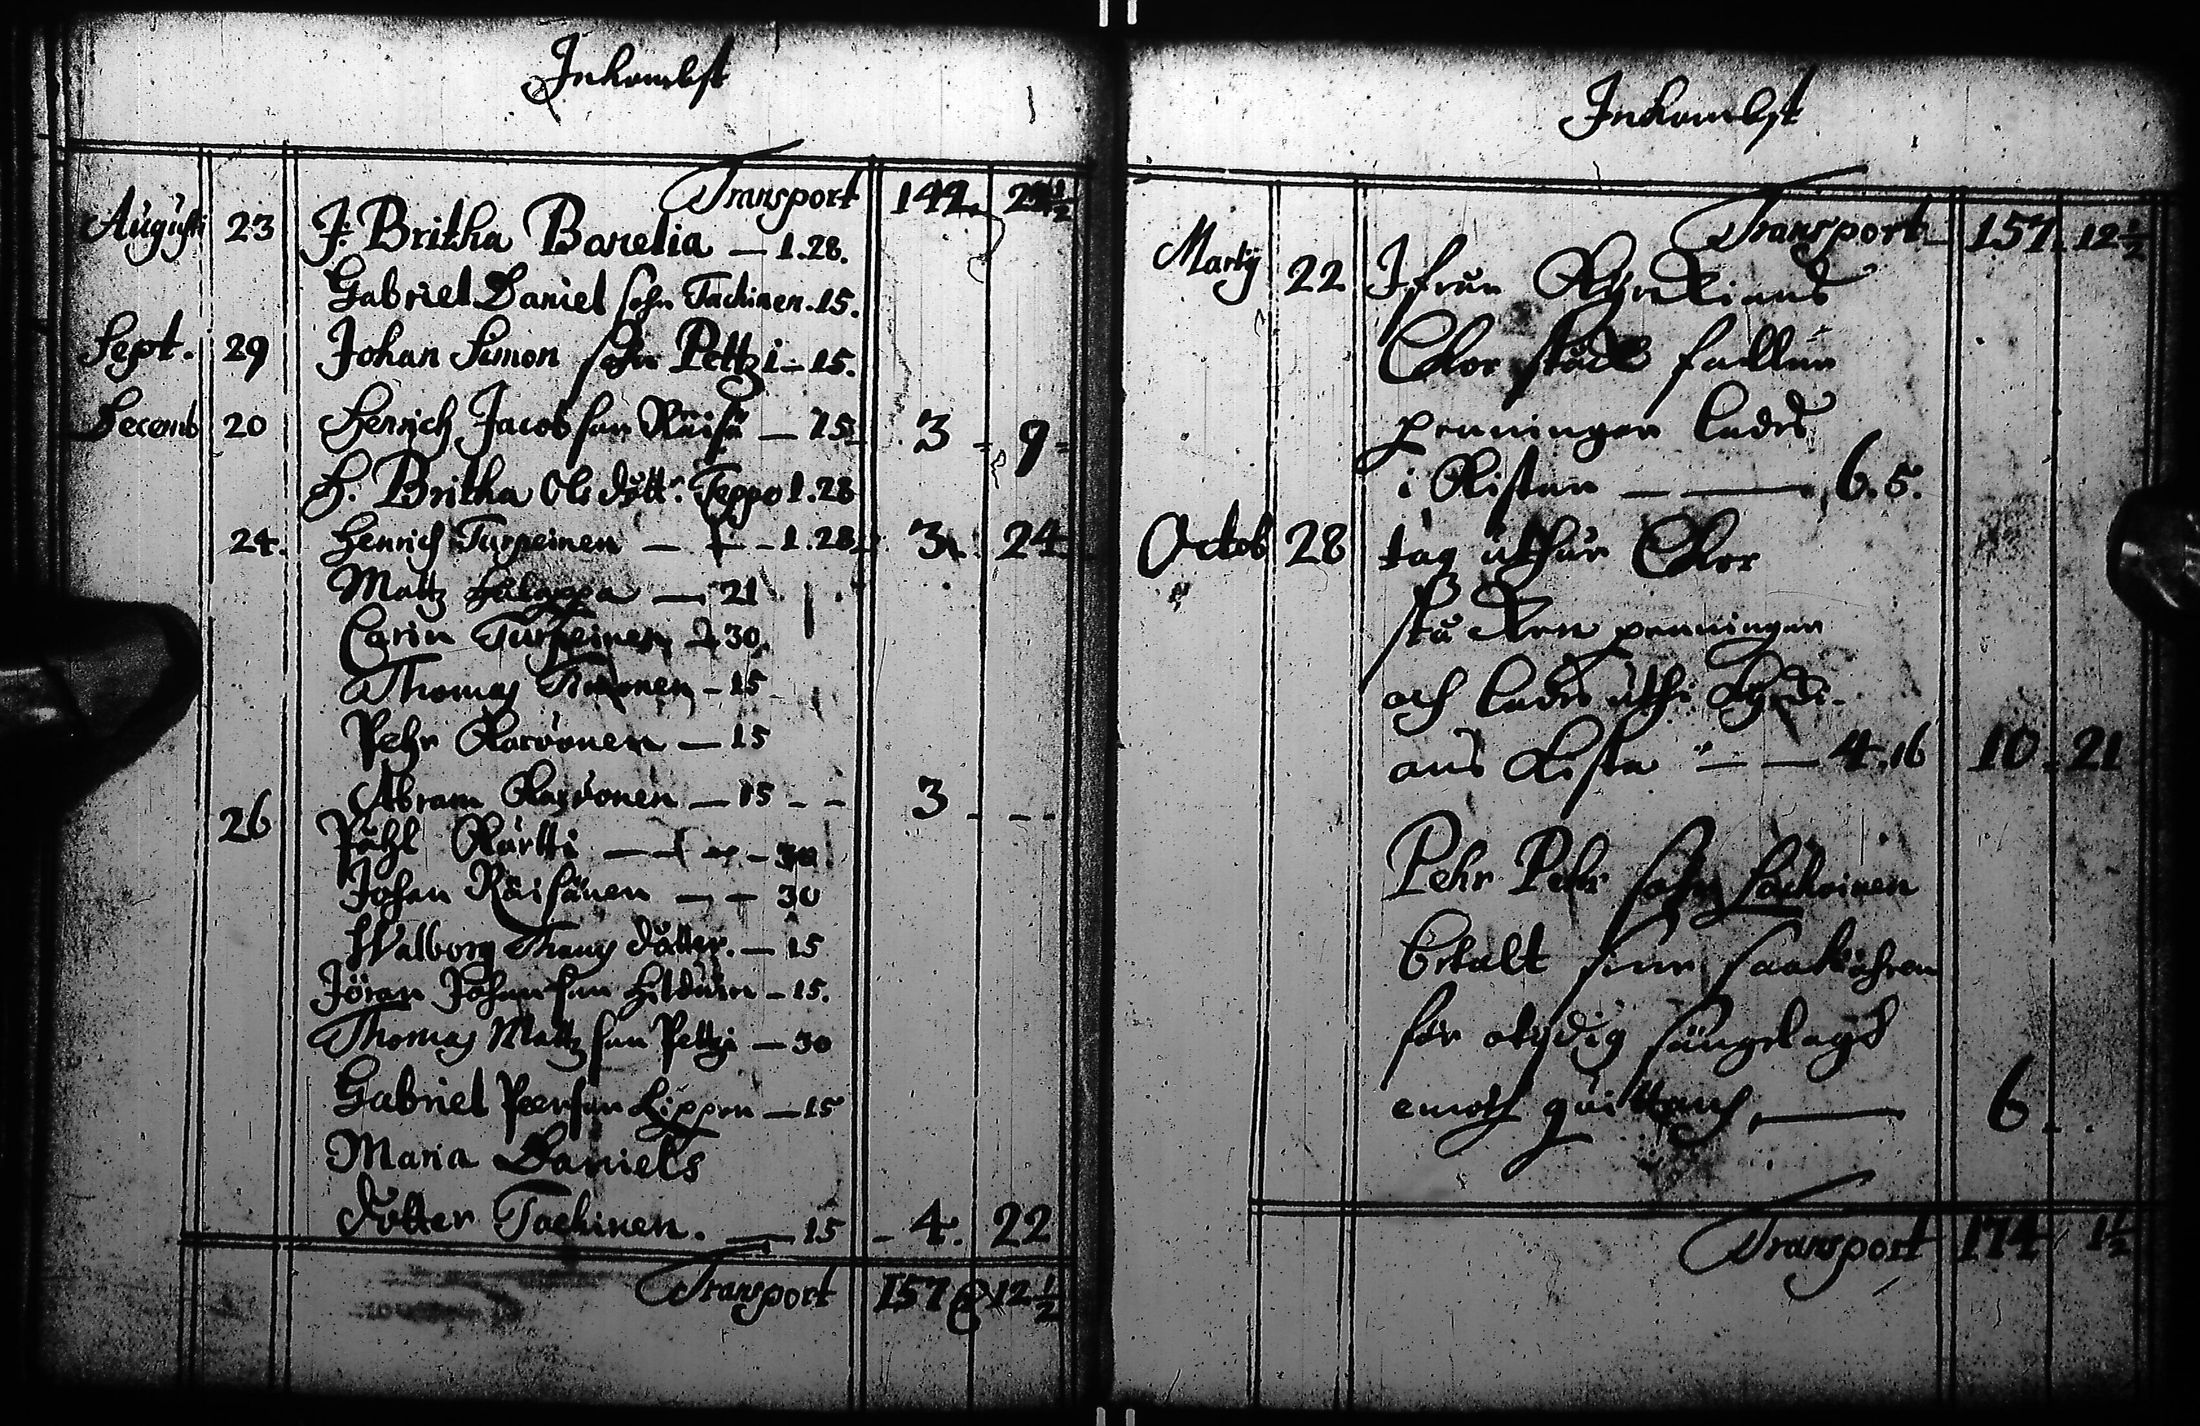 Inkombst
Transport 142. 21½
Augusti 23 J: Britha Bonelia — 1.28.
Gabriel Daniel sohn Tachinen. 15.
Sept. 29 Johan Simon sohn Pettzi — 15.
Decemb 20 Henrich Jacob son Räisä — 15. 3 - 9 -
H. Britha Ols dott:r Teppo 1.28
24. Henrich Turpeinen — 1.28. 3. 24
Mattz — 21
Carin Turpeinen 30.
Thomas - 15
Pehr Karvonen — 15
Abram Karvonen — 15 - - 3 - - -
26 Påhl Kärtti — 30.
Johan Räisänen — — 30
Walborg Thomas dotter. — 15
Jöran Johan son — 15.
Thomas Mattz son Pettzi — 30
Gabriel Peerson Lippon — 15
Maria Daniels
dotter Tachinen. — 15 - 4. 22
Transport 157 12½
Inkombst
Transport 157. 12½
Martij 22 Ifrån Kyrkians
Chor ståck fallne
penningar lades
i Kistan — — 6. 5.
Octob 28 tag uthur Chor
ståcken penningar
och lades uthi Kyrki-
ans Kista — — 4.16 10. 21
Pehr Pehr sohn
betalt sine saakören
för otydig sängelagh
emoth quittens — 6. .
Transport 174 1½